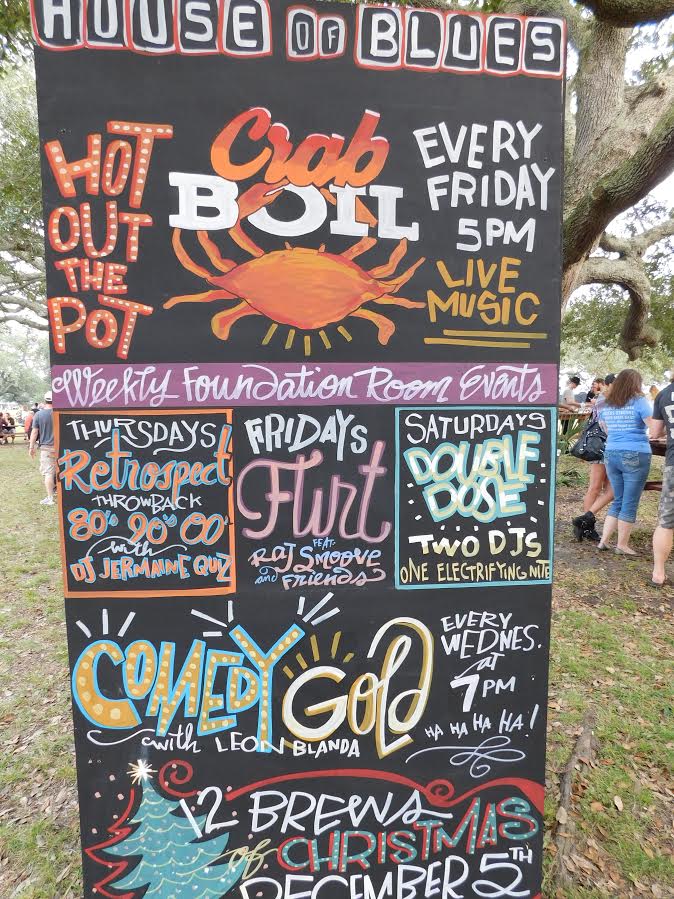 HOUSE OF BLUES
HOT
OUT
THE
POT
Crab
BOIL
EVERY
FRIDAY
5PM
LIVE
MUSIC
Weekly Foundation Room Events
THURSDAYS
Retrospect
THROWBACK
80's 90's 00'
with
DJ JERMAINE QUIZ
FRIDAYS
Flirt
FEAT.
RAJ SMOOVE
and friends
SATURDAYS
DOUBLE
DOSE
TWO DJS
ONE ELECTRIFYING NITE
COMEDY GOLD
with LEON BLANDA
EVERY
WEDNES.
at
7PM
HA HA HA HA!
12 BREWS
of CHRISTMAS
DECEMBER 5TH